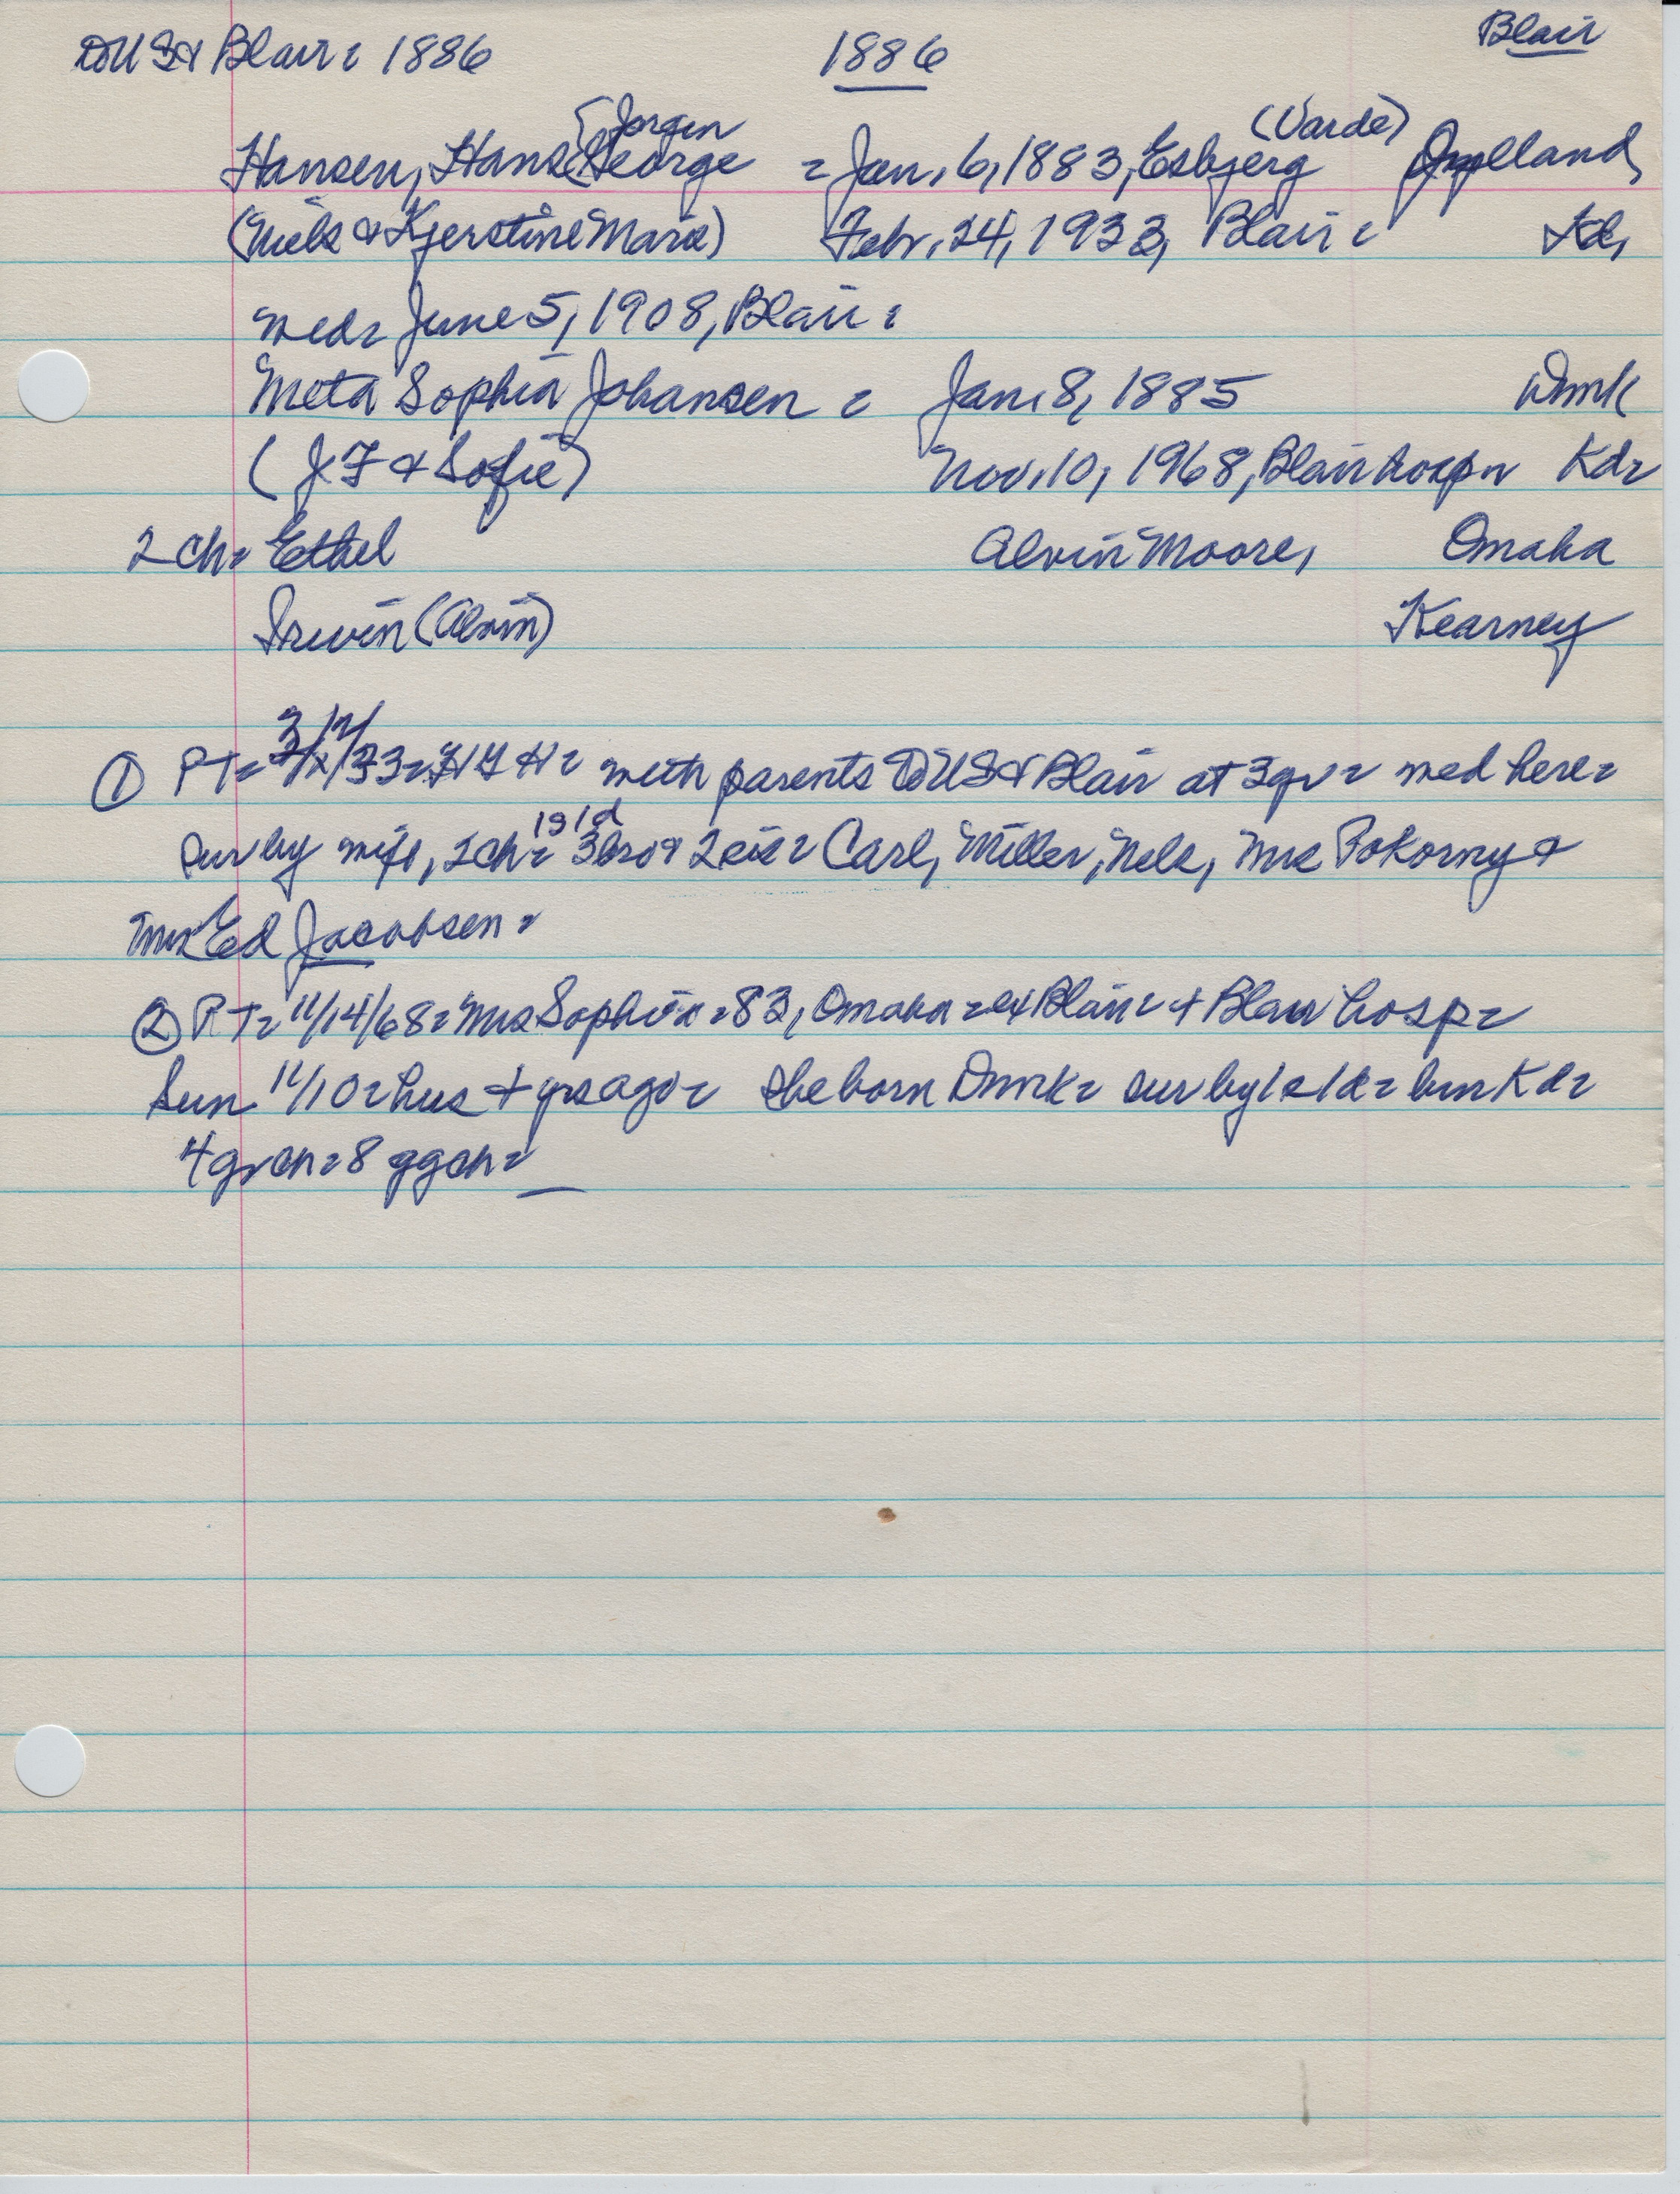 DUS & Blair: 1886 1886 Blair
(Jorgen (Varde)
Hansen, Hans (George = Jan. 6, 1883, Esbjerg Jylland,
(Niels & Kjerstine Marie) Febr. 24, 1933, Blair: Kd,
med: June 5, 1908, Blair:
Meta Sophia Johansen : Jan. 8, 1885 Dmk
(J F & Sofie) Nov. 10, 1968, Blair hosp: Kd:
2 ch: Ethel Alvin Moore, Omaha
Irwin (Alvin) Kearney
3/2/
① PT: 33: HGH: with parents to US & Blair at 3 yr: med here:
1s 1d
sur by wife, 2 ch: 3 bro & 2 sis: Carl, Miller, Nels, Mrs Pokorny &
Mrs Ed Jacobsen:
② PT: 11/14/68: Mrs Sophia: 83, Omaha: ex Blair: + Blair hosp:
Sun 11/10: hus + yrs ago: she born Dmk: sur by 1s 1d: bur Kd:
4 grch: 8 ggch: